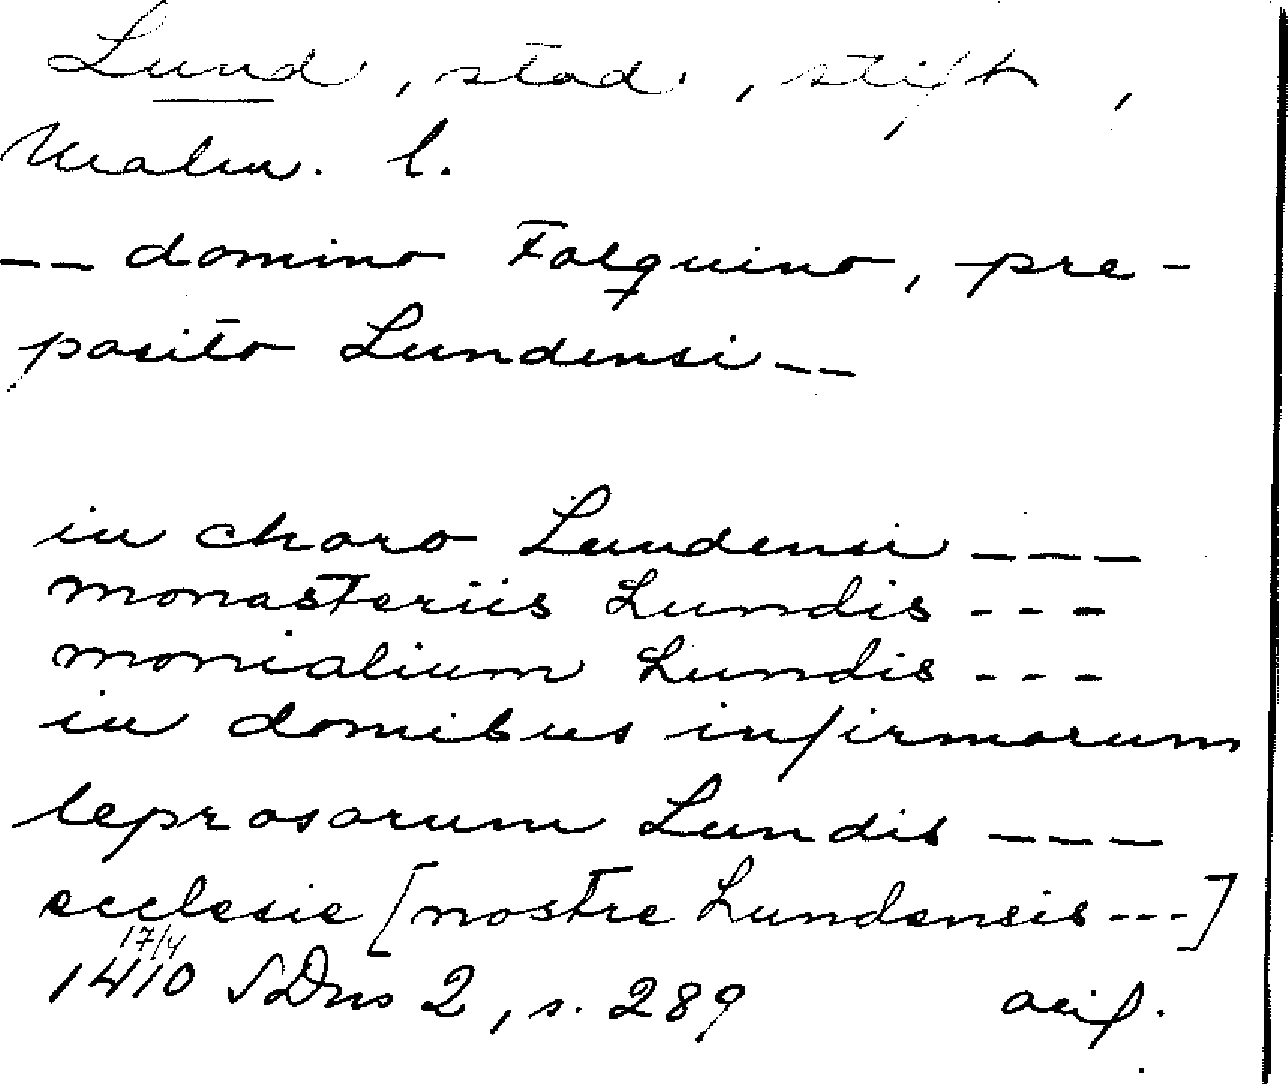 Lund, stad, stift,
Malm. l.
-- domino Folquino, pre-
posito Lundensi --
in choro Lundensi ---
monasteriis Lundis ---
monialium Lundis ---
in domibus infirmorum
leprosorum Lundis ---
ecclesie [nostre Lundensis ---]
17/4
1410 SDns 2, s. 289 avif.